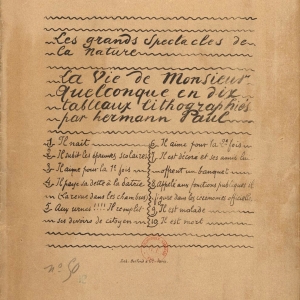 Les grands Spectacles de
La Nature
La Vie de Monsieur
Quelconque en dix
tableaux lithographiés
par hermann Paul
1 Il naît
2 Il subit les épreuves scolaires
3 Il aime pour la 1e fois
4 Il paye sa dette à la patrie
(La revue dans les chambres)
5 Aux urnes!!!! Il complit
ses devoirs de citoyen
6 Il aime pour la 2e fois
7 Il est décoré et ses amis lui
offrent un banquet
8 Appelé aux fonctions publiques il
figure dans les cérémonies officielles
9 Il est malade
10 Il est mort
No 50